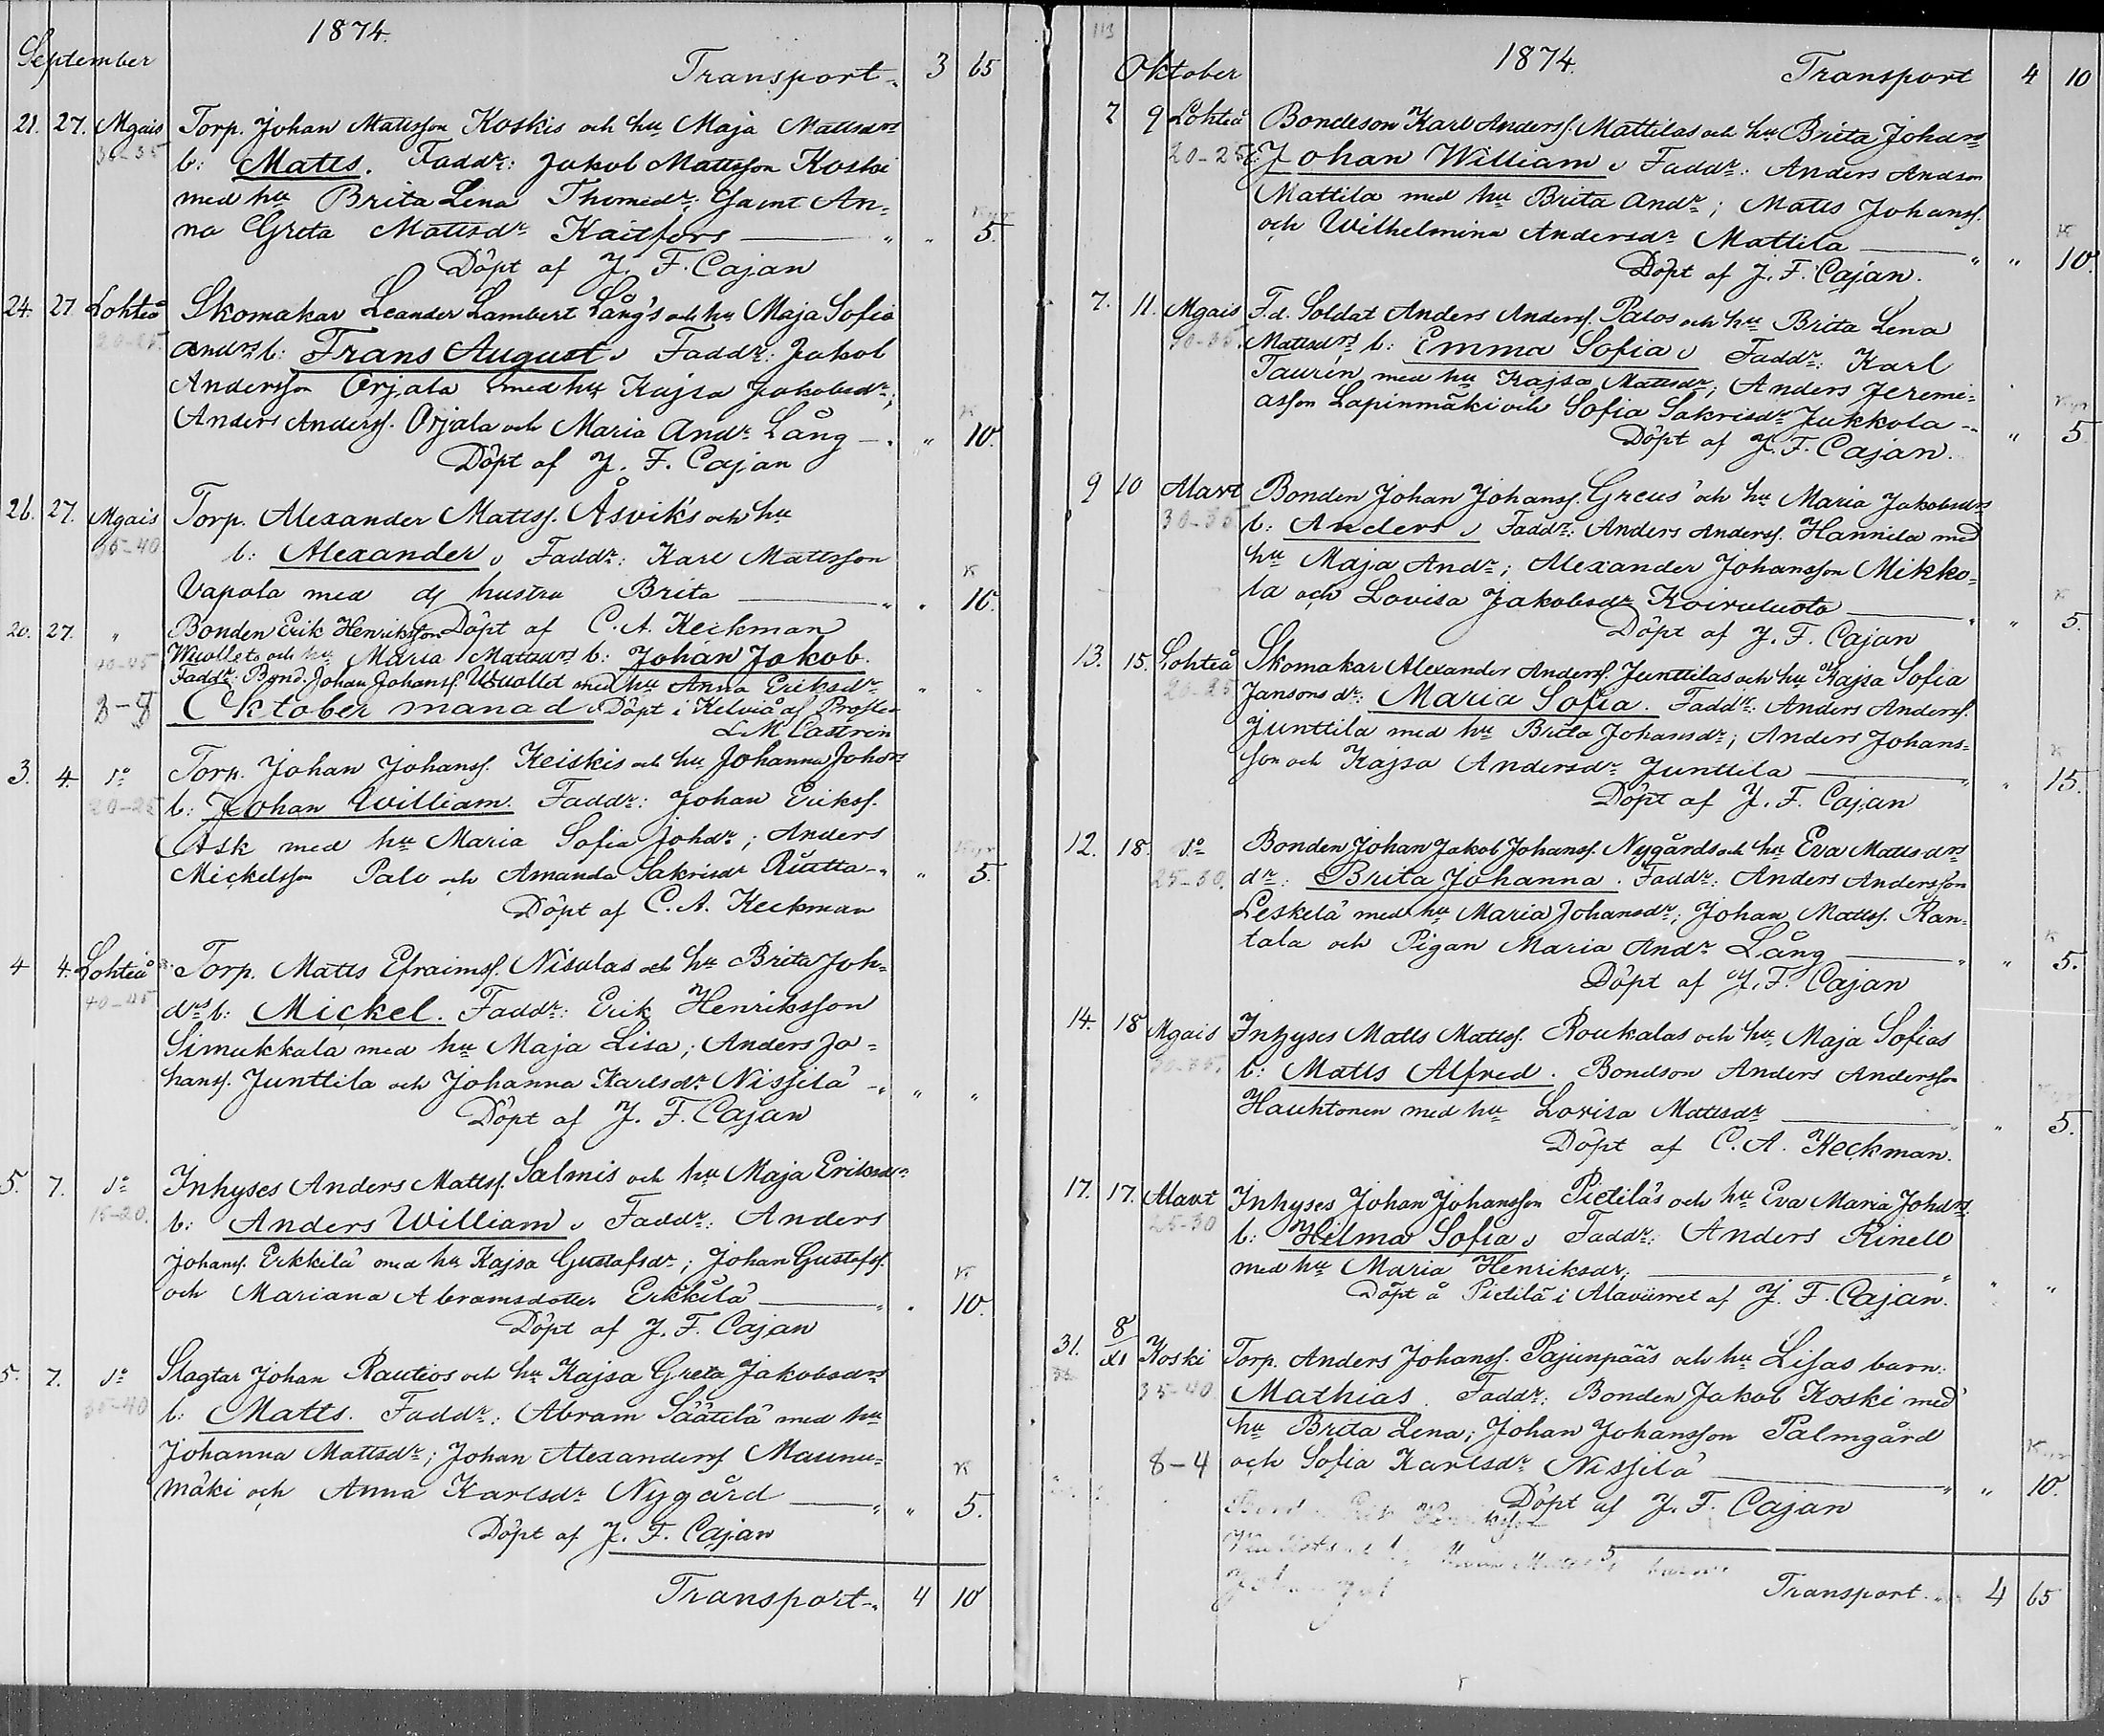 1874.
September
Transport 3 65
21. 27. Mgais Torp. Johan Mattsson Koskis och hu Maja Mattsdrs
30-35 b: Matts. Faddr: Jakob Mattsson Koski
med hu Brita Lena Thomedr; Gamt An=
na Greta Mattsdr Kaitfors " " 5.
Döpt af J. F. Cajan
24. 27 Lohteå Skomakar Leander Lambert Lång's och hu Maja Sofia
20-25. Andrs b: Frans August. Faddr: Jakob
Andersson Orjala med hu Kajsa Jakobsdr;
Anders Anderss. Orjala och Maria Andr Lång " 10.
Döpt af J. F. Cajan
26. 27. Mgais Torp. Alexander Matts. Åsviks och hu
35-40 b: Alexander. Faddr: Karl Mattsson
Vapola med dss hustru Brita " " 10.
20. 27. " Bonden Erik Henriksson Döpt af C. A. Keckman
40-45 Wuollets och hu Maria Mattsdrs b: Johan Jakob.
Faddr: Bond. Johan Johanss. Wuollet med hu Anna Eriksdr " "
8-8 Oktober månad Döpt i Kelviå af Prosten
L. M. Castrén
3. 4. do Torp. Johan Johanss. Keiskis och hu Johanna Johdrs
20-25 b: Johan William. Faddr: Johan Erikss.
Ask med hu Maria Sofia Johdr; Anders
Mickelsson Palo och Amanda Sakrisdr Riutta " " 5.
Döpt af C. A. Keckman
4 4. Lohteå Torp. Matts Efraimss. Nisulas och hu Brita Joh=
40-45 drs b: Mickel. Faddr: Erik Henriksson
Simukkala med hu Maja Lisa; Anders Jo=
hanss. Junttila och Johanna Karlsdr Nissilä " " "
Döpt af J. F. Cajan
5. 7. do Inhyses Anders Matts. Salmis och hu Maja Eriksdrs
15-20. b: Anders William. Faddr: Anders
Johanss. Erkkilä med hu Kajsa Gustafsdr; Johan Gustafss.
och Mariana Abramsdotter Erkkilä " " 10.
Döpt af J. F. Cajan
5. 7. do Slagtar Johan Rautios och hu Kajsa Greta Jakobsdrs
35-40 b: Matts. Faddr: Abram Säätelä med hu
Johanna Mattsdr; Johan Alexanderss Maunu=
mäki och Anna Karlsdr Nygård " " 5.
Döpt af J. F. Cajan
Transport 4 10
113
Oktober 1874. Transport 4 10
7 9 Lohteå Bondeson Karl Anderss. Mattilas och hu Brita Johdrs
20-25 b: Johan William. Faddr: Anders Andson
Mattila med hu Brita Andr; Matts Johanss.
och Wilhelmina Andersdr Mattila " " 10.
Döpt af J. F. Cajan.
7. 11. Mgais F.d. Soldat Anders Anderss. Palos och hu Brita Lena
30-35. Mattsdrs b: Emma Sofia. Faddr: Karl
Taurén med hu Kajsa Mattsdr; Anders Jeremi=
asson Lapinmäki och Sofia Sakrisdr Jukkola " 5
Döpt af J. F. Cajan.
9 10 Alavt Bonden Johan Johanss. Greus' och hu Maria Jakobsdrs
30-35 b: Anders. Faddr: Anders Anderss. Hannila med
hu Maja Andr; Alexander Johansson Mikko=
la och Lovisa Jakobsdr Koivuluoto " " 5.
Döpt af J. F. Cajan
13. 15. Lohteå Skomakar Alexander Anderss. Junttilas och hu Kajsa Sofia
20-25 Jansons dr: Maria Sofia. Faddr: Anders Anderss.
Junttila med hu Brita Johansdr; Anders Johans=
son och Kajsa Andersdr Junttila " " 15.
Döpt af J. F. Cajan
12. 18. do Bonden Johan Jakob Johanss. Nygårds och hu Eva Mattsdrs
25-30. dr: Brita Johanna. Faddr: Anders Andersson
Leskelä med hu Maria Johansdr; Johan Matts. Ran=
tala och Pigan Maria Andr Lång " " 5.
Döpt af J. F. Cajan
14. 18 Mgais Inhyses Matts Mattss. Roukalas och hu Maja Sofias
30-35. b: Matts Alfred. Bondson Anders Andersson
Hauhtonen med hu Lovisa Mattsdr " " 5.
Döpt af C. A. Keckman.
17. 17. Alavt Inhyses Johan Johansson Pietilä's och hu Eva Maria Johdrs
25-30 b: Hilma Sofia. Faddr: Anders Rinell
med hu Maria Henriksdr; " " "
Döpt å Pietilä i Alaviirret af J. F. Cajan.
31. 8/XI Koski Torp. Anders Johanss. Pajunpääs och hu Lisas barn:
35-40. Mathias. Faddr: Bonden Jakob Koski med
hu Brita Lena; Johan Johansson Palmgård
8-4 och Sofia Karlsdr Nissilä " " 10.
Döpt af J. F. Cajan
Transport 4 65